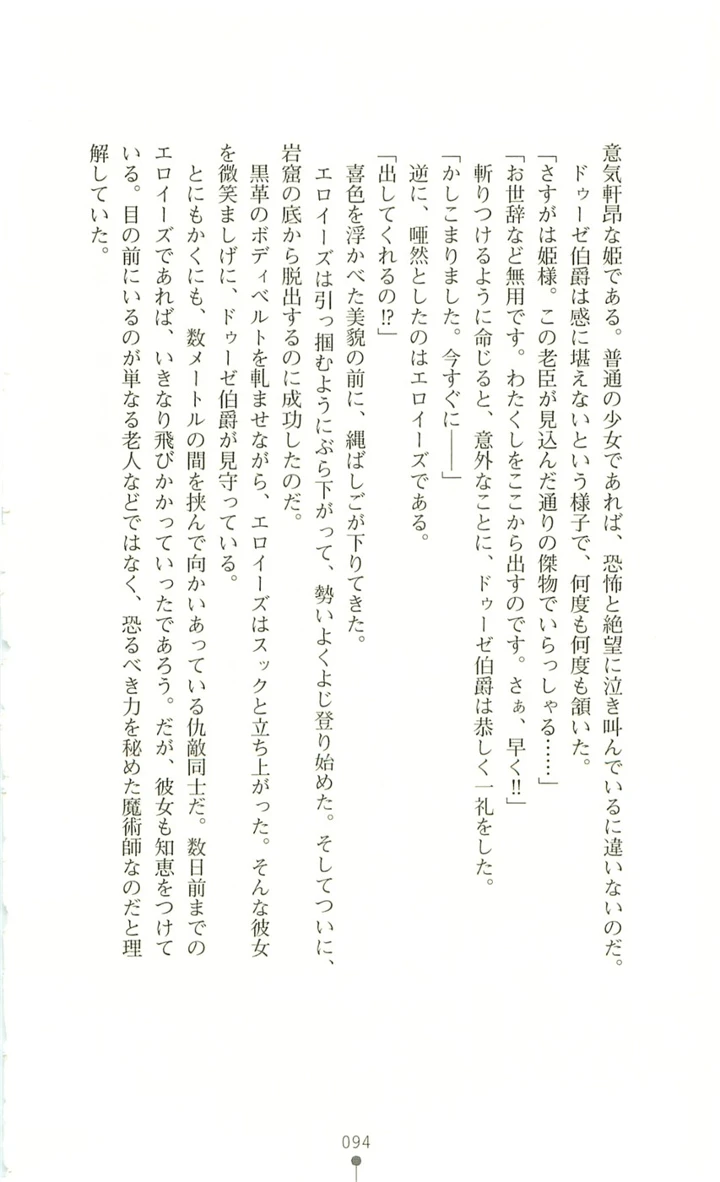 意気軒昂な姫である。普通の少女であれば、恐怖と絶望に泣き叫んでいるに違いないのだ。
ドゥーゼ伯爵は感に堪えないという様子で、何度も何度も頷いた。
「さすがは姫様。この老臣が見込んだ通りの傑物でいらっしゃる……」
「お世辞など無用です。わたくしをここから出すのです。さぁ、早く!!」
斬りつけるように命じると、意外なことに、ドゥーゼ伯爵は恭しく一礼をした。
「かしこまりました。今すぐに――」
逆に、唖然としたのはエロイーズである。
「出してくれるの!?」
喜色を浮かべた美貌の前に、縄ばしごが下りてきた。
エロイーズは引っ掴むようにぶら下がって、勢いよくよじ登り始めた。そしてついに、
岩窟の底から脱出するのに成功したのだ。
黒革のボディベルトを軋ませながら、エロイーズはスックと立ち上がった。そんな彼女
を微笑ましげに、ドゥーゼ伯爵が見守っている。
とにもかくにも、数メートルの間を挟んで向かいあっている仇敵同士だ。数日前までの
エロイーズであれば、いきなり飛びかかっていったであろう。だが、彼女も知恵をつけて
いる。目の前にいるのが単なる老人などではなく、恐るべき力を秘めた魔術師なのだと理
解していた。
094